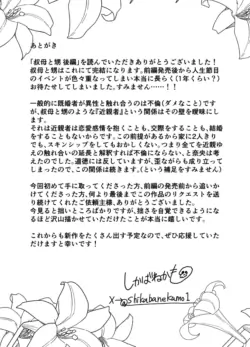 あとがき
「叔母と甥 後編」を読んでいただきありがとうございました！
叔母と甥はこれにて完結になります。前編発売後から人生節目
のイベントが色々重なってしまい本当に長らく（1年くらい？）
お待たせしてしまいました。すみません……！！
一般的に既婚者が異性と触れ合うのは不倫（ダメなこと）です
が、叔母と甥のような『近親者』という関係はその壁を曖昧に
します。
それは近親者は恋愛感情を抱くことも、交際をすることも、結婚
をすることもないからです。この前提があるから家に2人きり
でも、スキンシップをしてもおかしくない、つまり全てを近親ゆえ
の触れ合いの延長と解釈すれば不倫にならない、と奈央は考え
ています。道徳には反していますが、歪ながらも成り立って
しまったので、この関係が生まれました。（という補足をすみません）
今回初めて手に取ってくださった方、前編の発売前から追いか
けてくださった方、何より最後までこの作品のリクエストを送り
続けてくれたご依頼主様、ありがとうございました。
今見ると拙いところばかりですが、拙さを自覚できるようにな
るほど沢山描かせていただけたことが本当に嬉しいです。
これからも新作をたくさん出す予定なので、ぜひ応援していた
だけますと幸いです！
しかばねかも
X→@shikabanekamo1